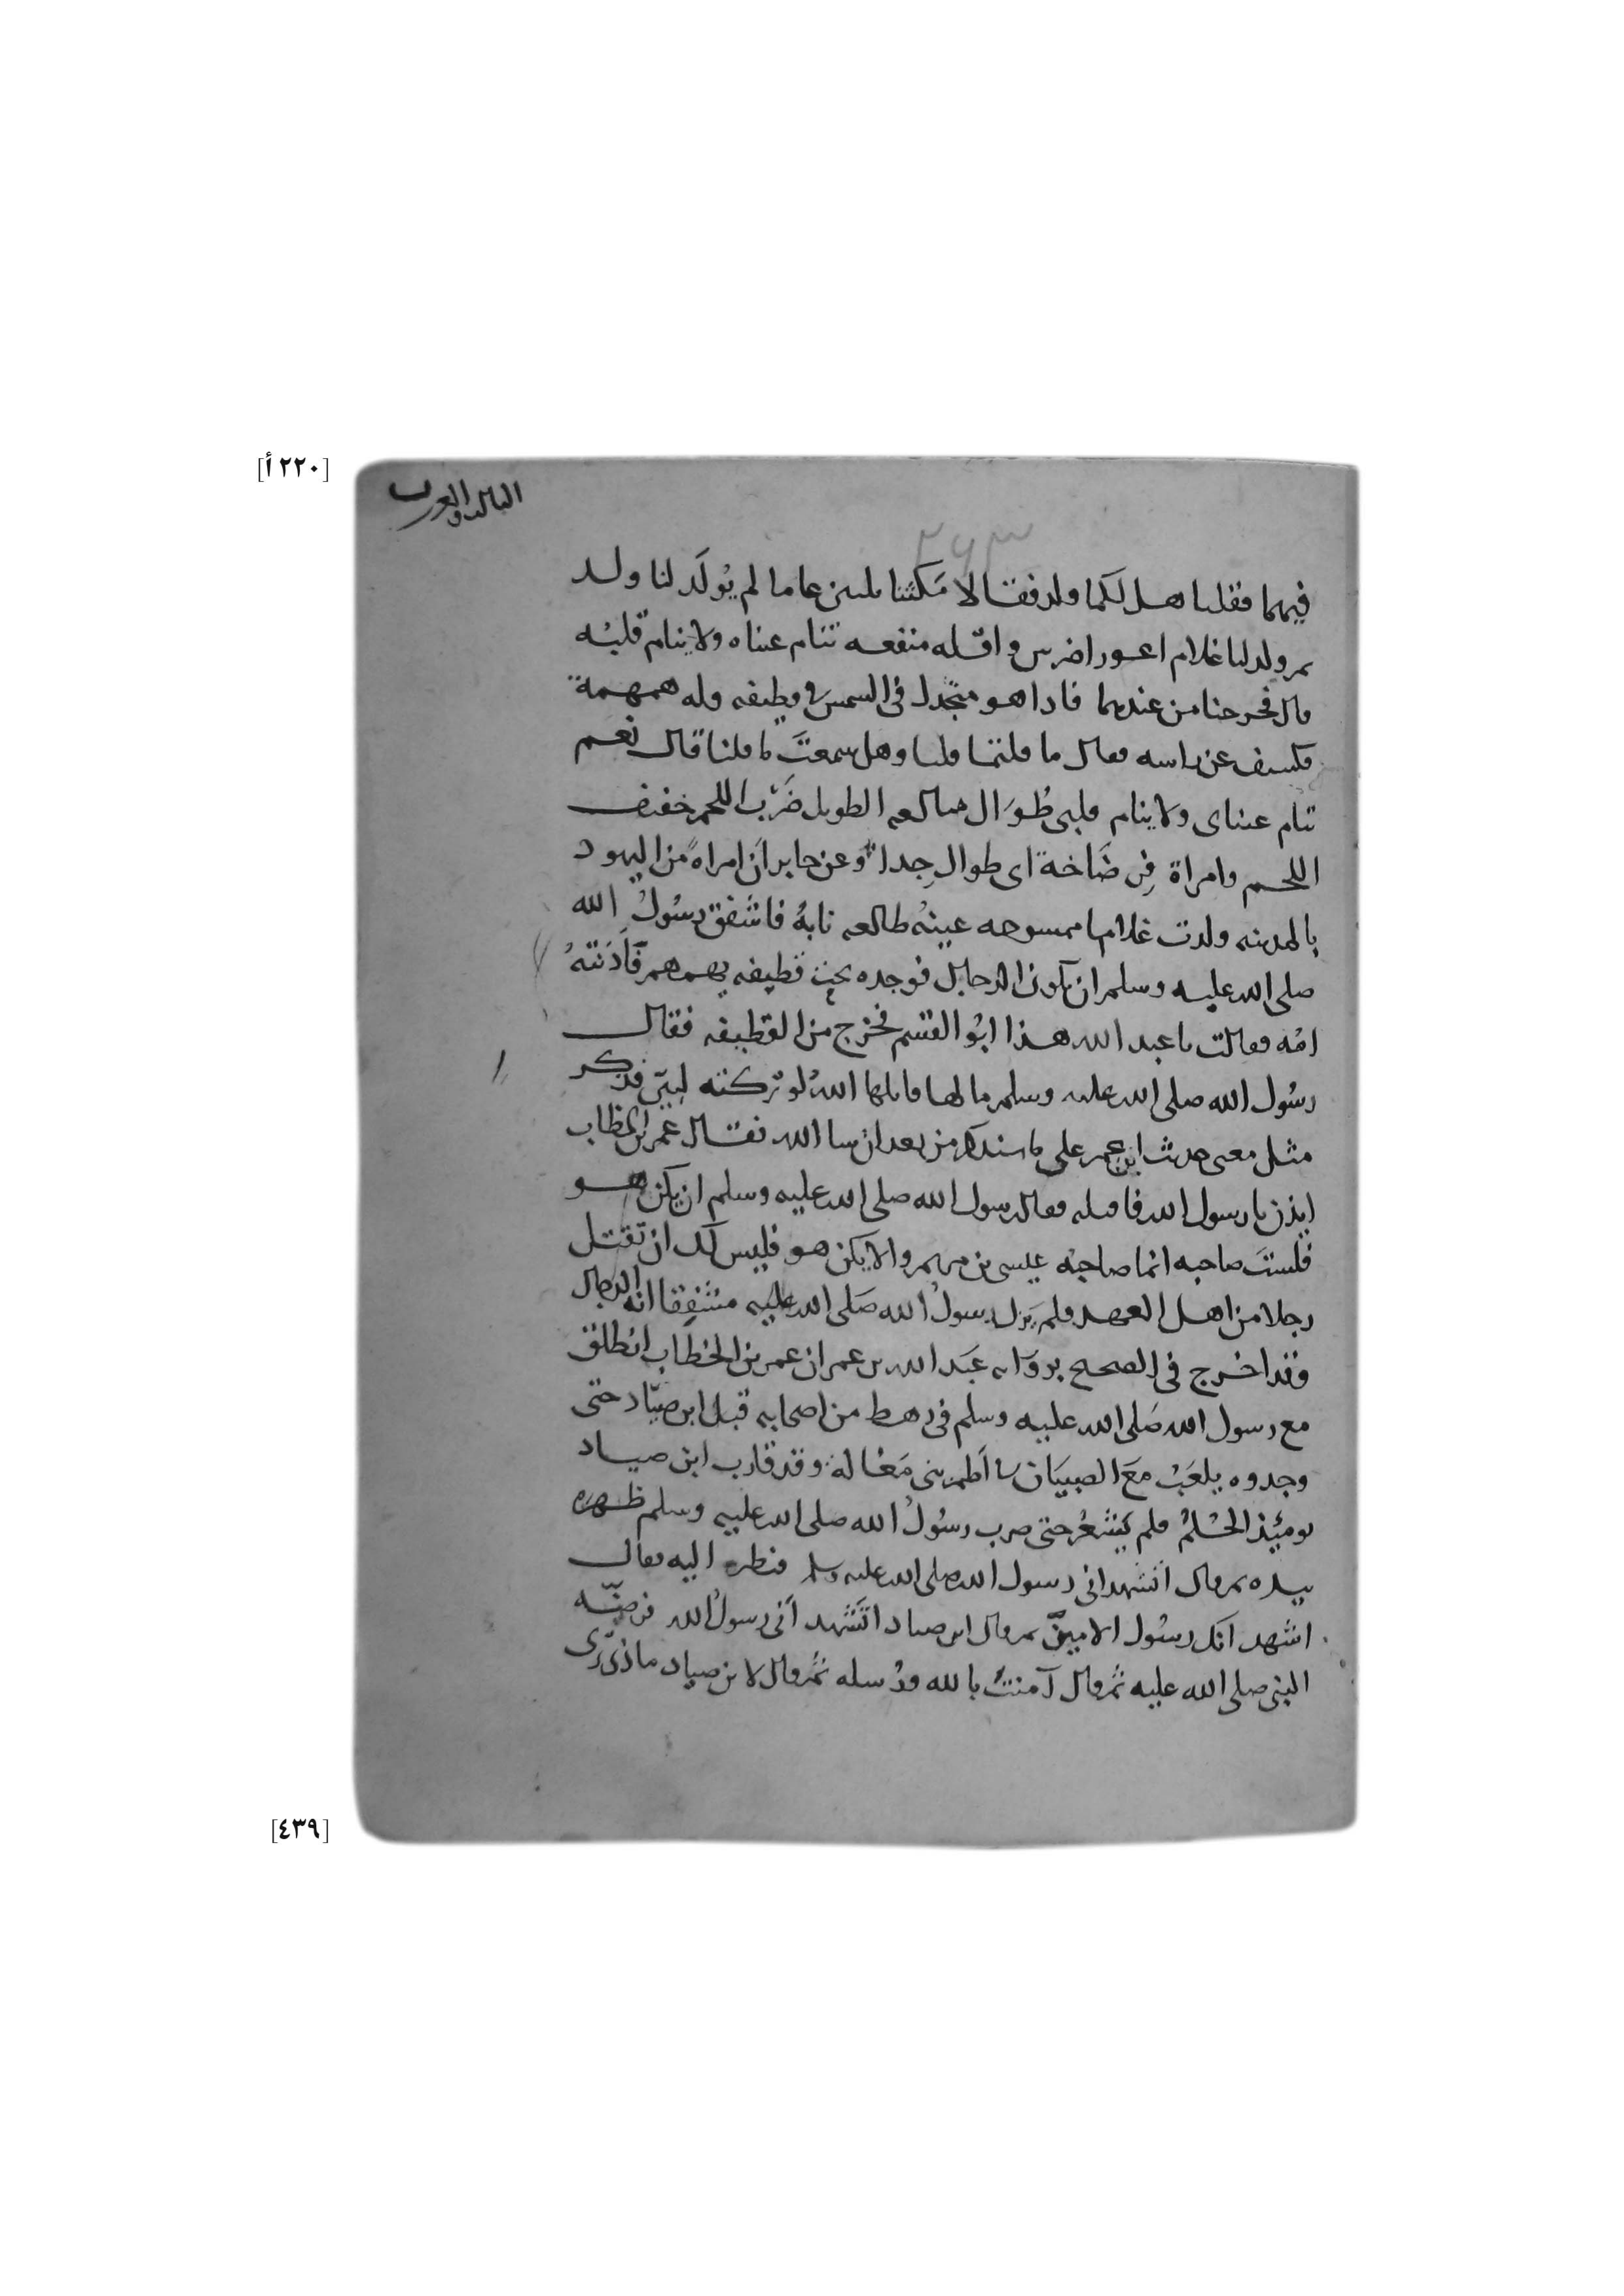 [٢٢٠ أ]
الثالث والعشرون
٢٤٣
فيهما فقلنا هل لكما ولد فقالا مكثنا ثلثين عاما لم يُولَد لنا ولد
ثم ولد لنا غلام اعور اضرس واقله منفعه تنام عيناه ولا ينام قلبُه
قال فخرجنا من عندهما فاذا هو متجدل في الشمس في قطيفه وله همهمة
فكشف عن راسه فقال ما قلتما قلنا وهل سمعتَ ما قلنا قال نعم
تنام عيناى ولا ينام قلبى طُوَال مبالغه الطويل ضَرْب اللحم خفيف
اللحم وامراة فِرضَاخة اى طوال جدا وعن جابر ان امراة من اليهود
بالمدينه ولدت غلاما ممسوحه عينُه طالعه نابُهُ فاشفق رسُولُ الله
صلى الله عليه وسلم ان يكون الدجال فوجده تحت قطيفه يهمهم فآذَنَتهُ
امُه فقالت يا عبد الله هذا ابُو القسم فخرج من القطيفه فقال
رسُول الله صلى الله عليه وسلم ما لها قاتلها اللهُ لو تركته لبيّن فذكر
مثل معنى حديث ابن عمر على ما سنذكره من بعد ان شا الله فقال عُمر بن الخطاب
ايذن يا رسول الله فاقتله فقال رسول الله صلى الله عليه وسلم ان يكن هو
فلستَ صاحبه انما صاحبُه عيسى بن مريم والا يكن هو فليس لك ان تقتل
رجلا من اهل العهد فلم يَزل رسولُ الله صَلى الله عليه مشفِقا انه الدجال
وقد اخرج فى الصحيح برواية عبَد الله بن عمر ان عمر بن الخطاب انطلق
مع رسول الله صَلى الله عليه وسلم فى رهط من اصحابه قبل ابن صيّاد حتى
وجدوه يلعَبُ معَ الصبيَان فى اُطم بنى مَغالة وقد قارب ابن صياد
يومئِذ الحُلمُ فلم يَشعُر حتى ضرب رسُولُ الله صلى الله عليه وسلم ظهره
بيده ثم قال اتشهد انى رسول الله صلى الله عليه وسلم فنظره اليه فقال
اشهد انَك رسُول الاميّين ثم قال ابن صياد اتَشهد اَنى رسولُ الله فرصّه
النبى صلى الله عليه ثم قال آمنتُ بالله ورُسله ثم قال لابن صياد ماذى ترى
[٤٣٩]